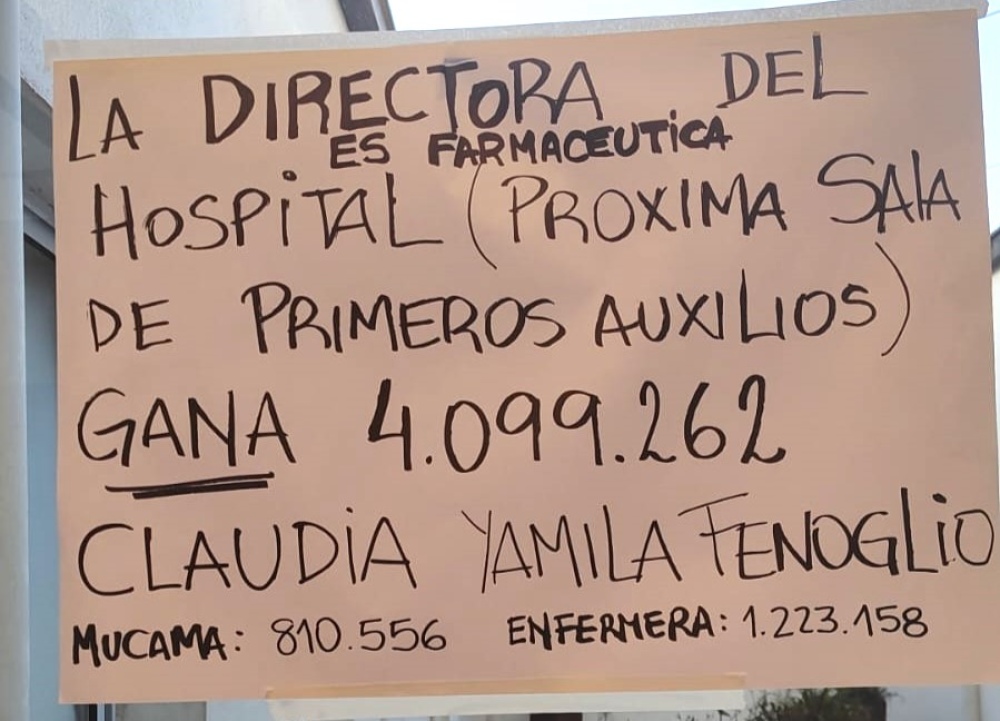 LA DIRECTORA DEL
ES FARMACEUTICA
HOSPITAL (PROXIMA SALA
DE PRIMEROS AUXILIOS)
GANA 4.099.262
CLAUDIA YAMILA FENOGLIO
MUCAMA: 810.556 ENFERMERA: 1.223.158